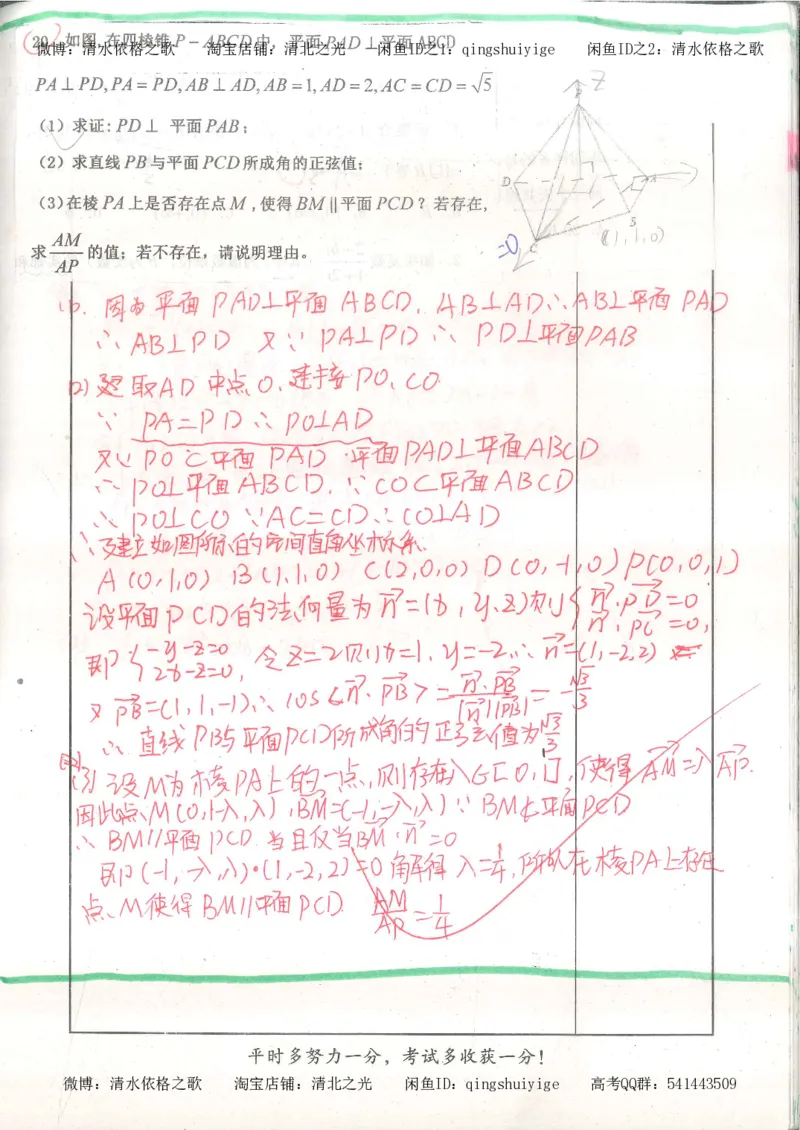 20. 如图,在四棱锥P-ABCD中，平面PAD⊥平面ABCD
微博：清水依格之歌 淘宝店铺：清北之光 闲鱼ID之1：qingshuiyige 闲鱼ID之2：清水依格之歌
PA⊥PD,PA=PD,AB⊥AD,AB=1,AD=2,AC=CD=√5
(1) 求证:PD⊥ 平面PAB;
(2) 求直线PB与平面PCD所成角的正弦值;
(3)在棱PA上是否存在点M,使得BM∥平面PCD？若存在,
求 AM/AP 的值；若不存在，请说明理由。
Z
P
D
A
B
(1,1,0)
=0
C
(1). 因为平面PAD⊥平面ABCD, AB⊥AD∴AB⊥平面PAD
∴AB⊥PD 又∵PA⊥PD∴PD⊥平面PAB
(2) 取AD中点O,连接PO、CO
∵PA=PD∴PO⊥AD
又∵PO⊂平面PAD 平面PAD⊥平面ABCD
∴PO⊥平面ABCD,∵CO⊂平面ABCD
∴PO⊥CO ∵AC=CD∴CO⊥AD
∴建立如图所示的空间直角坐标系
A(0,1,0) B(1,1,0) C(2,0,0) D(0,-1,0) P(0,0,1)
设平面PCD的法向量为n=(x,y,z)则{n·PD=0
n·PC=0,
即{-y-z=0
2x-z=0, 令z=2则x=1,y=-2,∴n=(1,-2,2)
又PB=(1,1,-1)∴cos<n·PB>=n·PB/|n||PB|=-√3/3
∴直线PB与平面PCD所成角的正弦值为√3/3
(3) 设M为棱PA上的一点,则存在λ∈[0,1],使得AM=λAP.
因此点M(0,1-λ,λ),BM=(-1,-λ,λ)∵BM⊄平面PCD
∴BM//平面PCD 当且仅当BM·n=0
即(-1,-λ,λ)·(1,-2,2)=0解得λ=1/4,所以在棱PA上存在
点M使得BM//平面PCD AM/AP=1/4
平时多努力一分，考试多收获一分！
微博：清水依格之歌 淘宝店铺：清北之光 闲鱼ID：qingshuiyige 高考QQ群：541443509